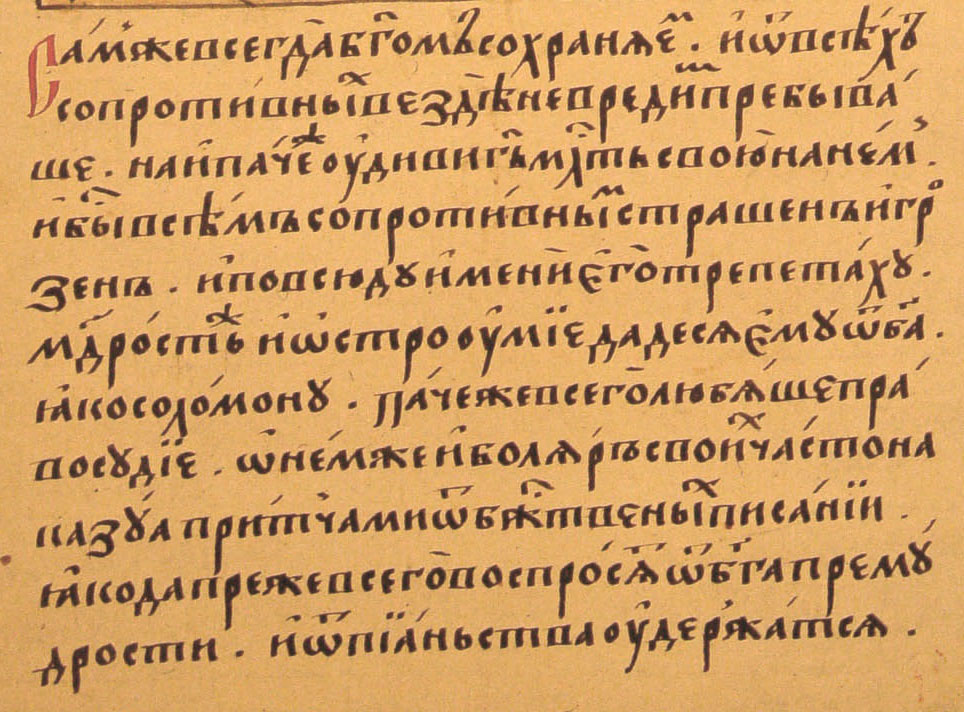 Самже всегда бг҃омъ сохраняе҆м . и҆ ѿ всѣхъ
сопроти́вныⷯ везⷣѣ невреди́мⷨ пребыва́
ше . наи҆па́чеⷤ оу҆диви гⷭ҇ь млⷭ҇ть свою̀ на не́мъ .
и҆ бы́ⷭ всѣ́мъ сопроти́вныⷨ страшенъ и҆ гро
зенъ . и҆ повсюду и҆мени є҆гѡ̀ трепета́ху .
мⷣрость же и҆ ѡ҆строоуміе дадеся є҆му ѿ бг҃а .
ꙗ҆ко соломону . па́че же всего̀ любя́ще пра́
восудїе . ѡ҆ не́мже и҆ боляръ свои́ⷯ ча́сто на
казуа при́тчами ѿ бжⷭ҇твены́ⷯ писа́нїи .
ꙗ҆ко да преже всего̀ воспрося́т ѿ бг҃а прему́
дрости . и҆ ѿ пїа́ньства оу҆держа́тся .